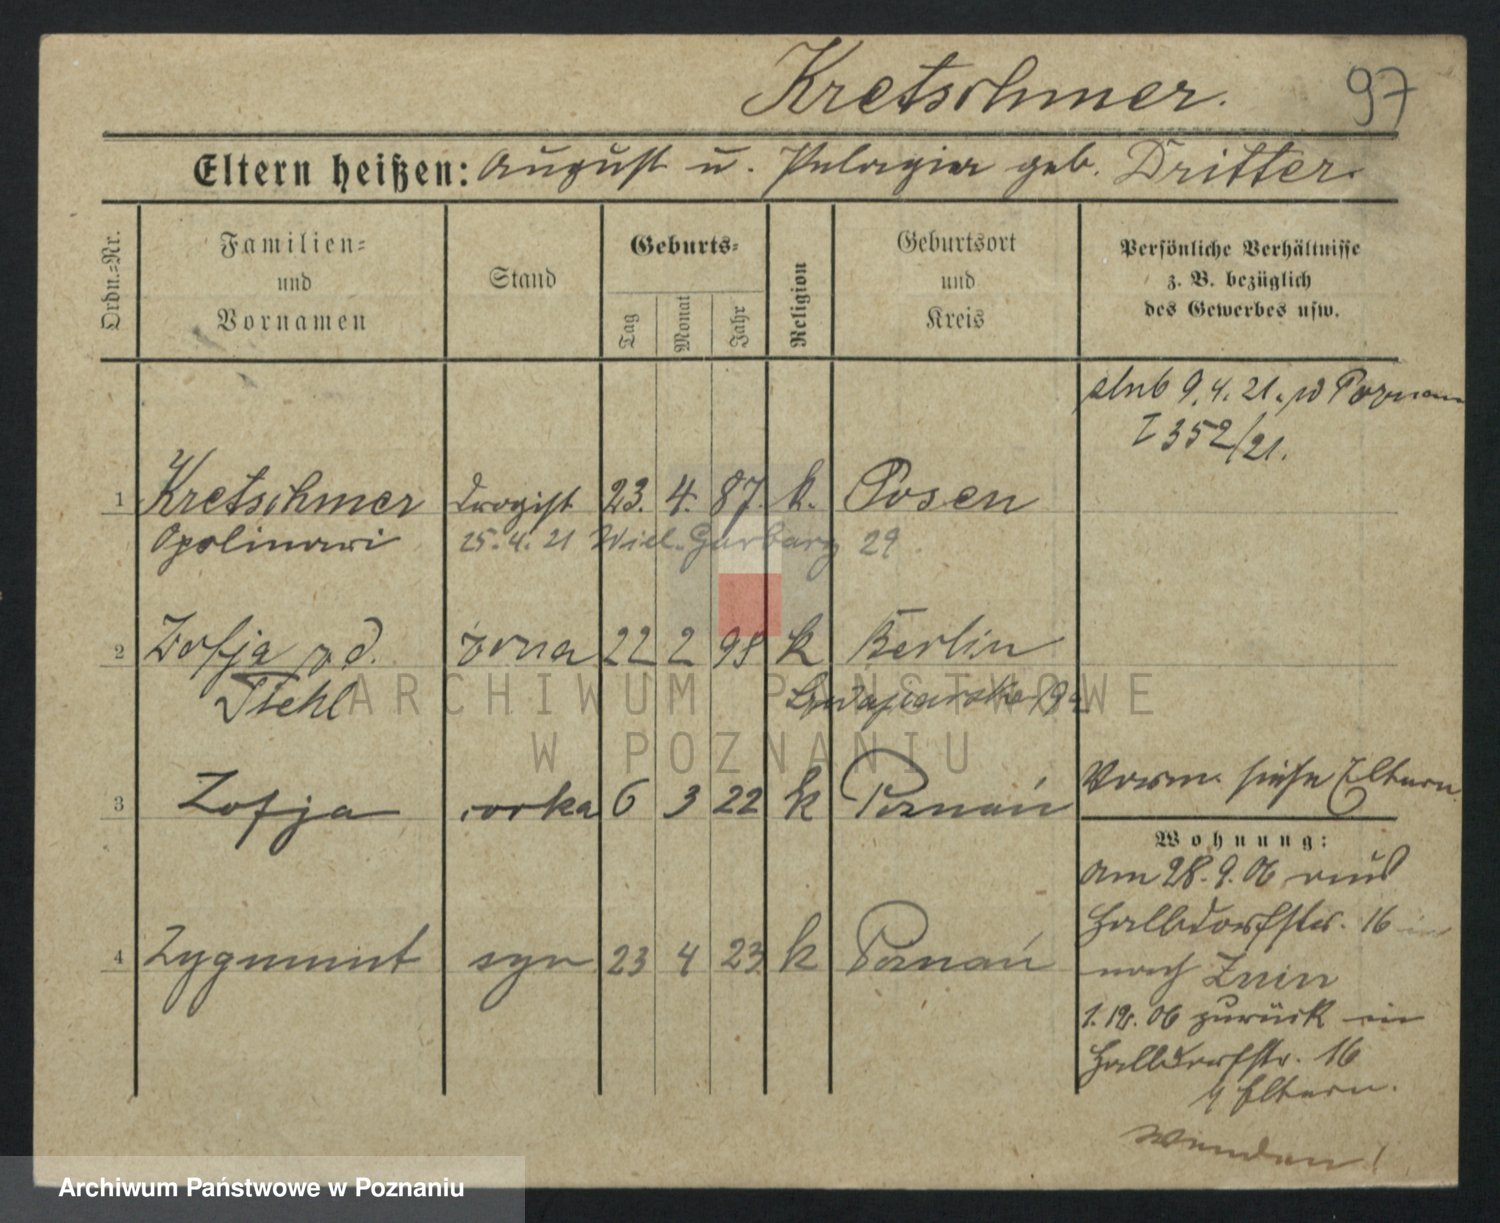 Kretschmer. 97
Eltern heißen: August u. Pelagia geb. Dritter.
Ordn.=Nr.
Familien=
und
Vornamen
Stand
Geburts=
Tag
Monat
Jahr
Religion
Geburtsort
und
Kreis
Persönliche Verhältnisse
z. B. bezüglich
des Gewerbes usw.
ślub 9.4.21. w Poznaniu
I 352/21.
1 Kretschmer Drogist 23. 4. 87. k. Posen
Apolinari 25.4.21 Wiel. Garbary 29
2 Zofja z d. żona 22 2 98 k Berlin
Stehl
3 Zofja córka 6 3 22 k Poznań
Vorm. siehe Eltern
Wohnung:
4 Zygmunt syn 23 4 23 k Poznań
am 28.9.06 aus
Halbdorfstr. 16
nach Znin
1.12.06 zurück in
Halbdorfstr. 16
Eltern.
Wenden!
ARCHIWUM PAŃSTWOWE
W POZNANIU
Archiwum Państwowe w Poznaniu